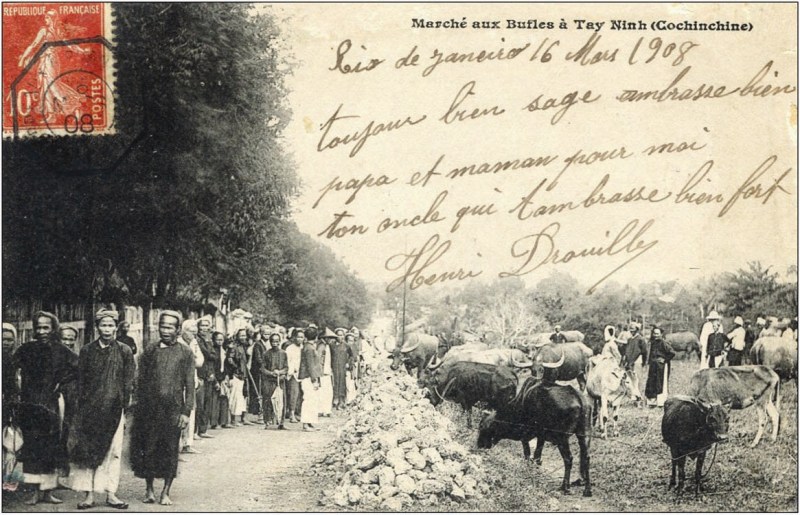 REPUBLIQUE FRANÇAISE
10c POSTES
08
Marché aux Bufles à Tay Ninh (Cochinchine)
Rio de janeiro 16 Mars 1908
toujour bien sage ambrasse bien
papa et maman pour moi
ton oncle qui t'ambrasse bien fort
Henri Drouilly